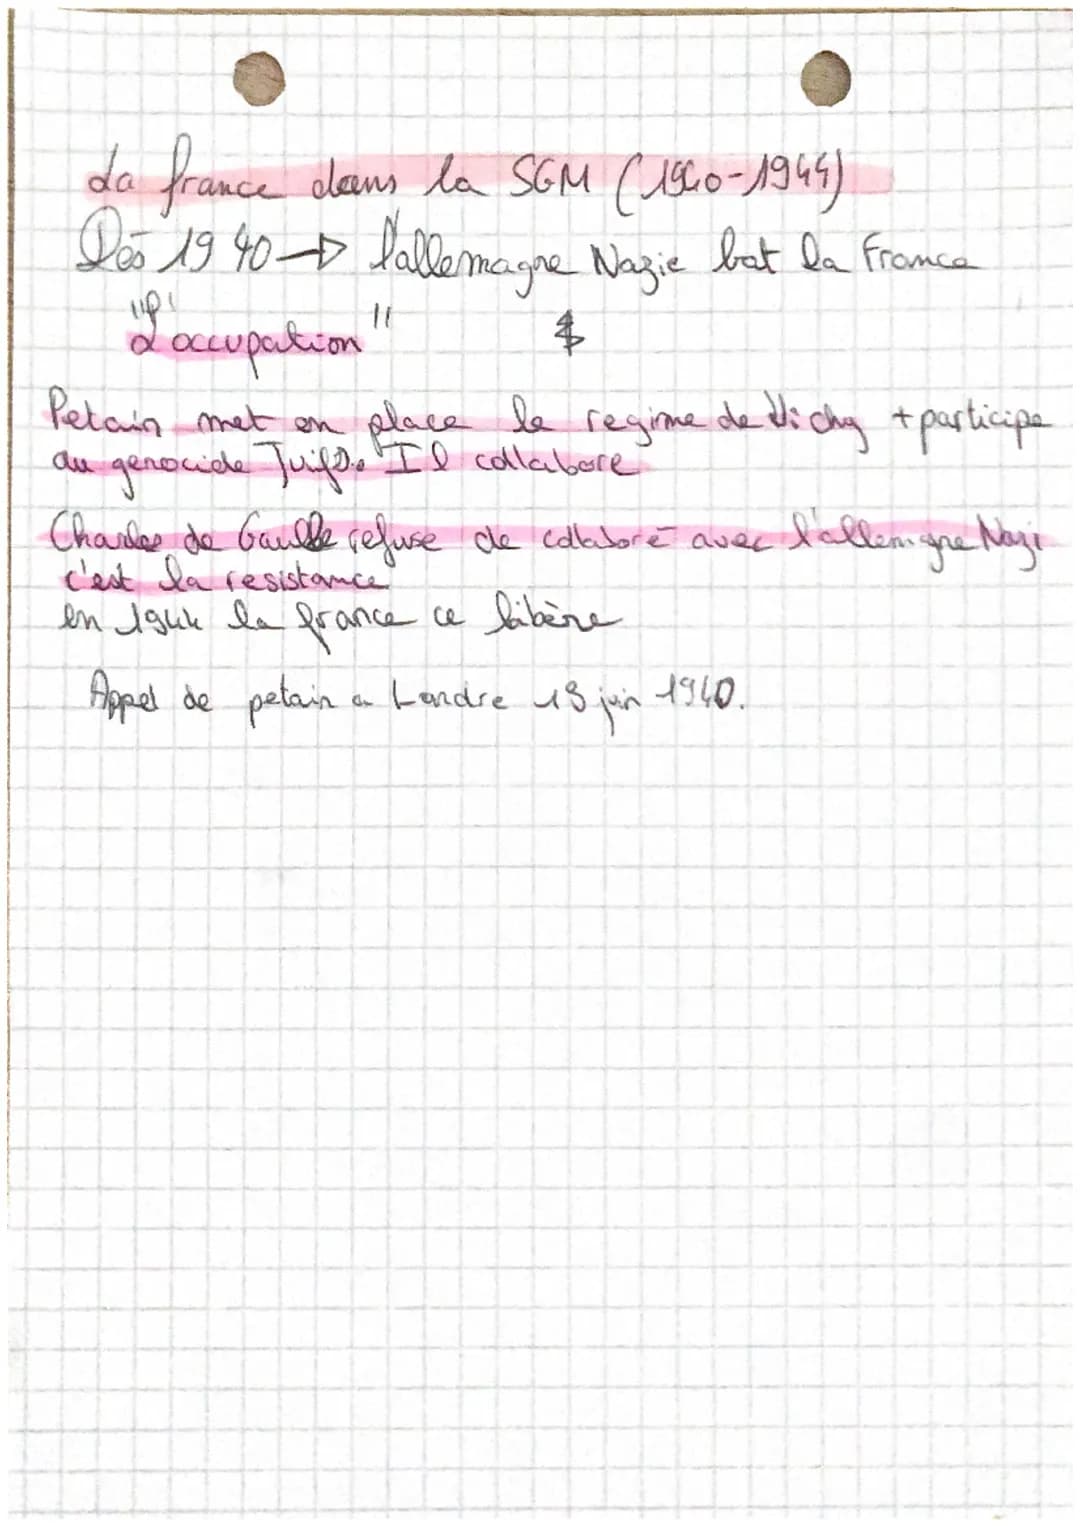 La france dans la SGM (1940-1944)
Dès 1940 → l'allemagne Nazie bat la France
"L'occupation"
Petain met en place le regime de Vichy + participe
au genocide Juifs. Il collabore
Charles de Gaulle refuse de collaboré avec l'allemagne Nazi
c'est la resistance
en 1944 la france ce libère
Appel de petain a Londre 18 juin 1940.